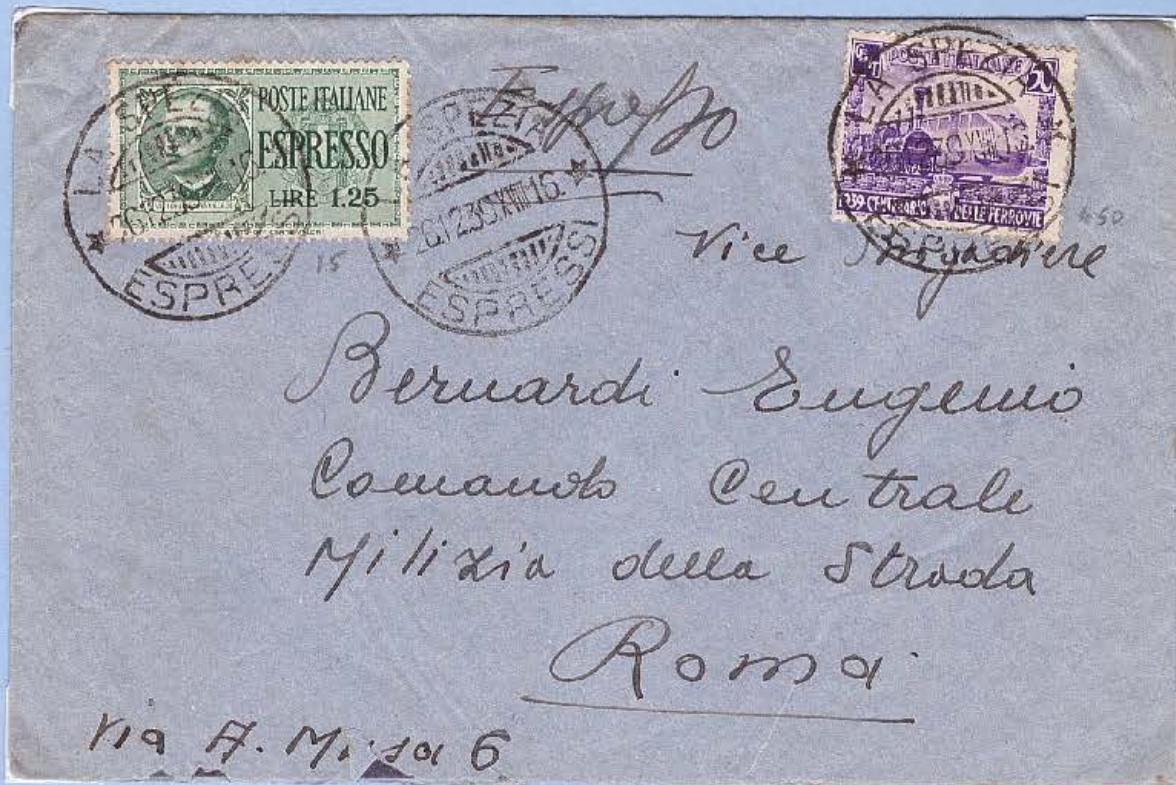 POSTE ITALIANE
ESPRESSO
LIRE 1.25
LA SPEZIA
26.12.39 XVIII 15
ESPRESSI
LA SPEZIA
26.12.39 XVIII 16
ESPRESSI
Espresso
CENT 50
POSTE ITALIANE
1839-1939 CENTENARIO DELLE FERROVIE
LA SPEZIA
ESPRESSI
15
450
Vice Brigadiere
Bernardi Eugenio
Comando Centrale
Milizia della Strada
Roma
Via A. Musa 6